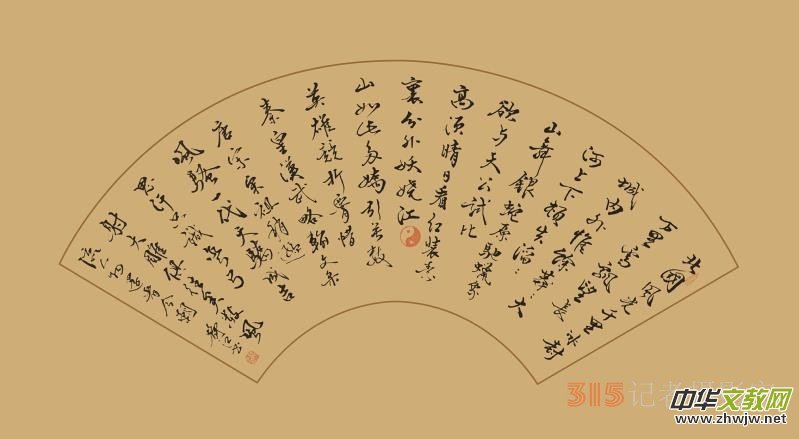 北國风光千里冰封
万里雪飘望长
城内外惟余莽:大
河上下顿失滔:
山舞银蛇原驰蜡象
欲与天公试比
高须晴日看红装素
裹分外妖娆江
山如此多娇引无数
英雄竞折腰惜
秦皇汉武略输文采
唐宗宋祖稍逊
风骚一代天骄成吉
思汗只识弯弓
射大雕俱往矣数风
流人物还看今朝
315记者摄影家
中华文教网
www.zhwjw.net